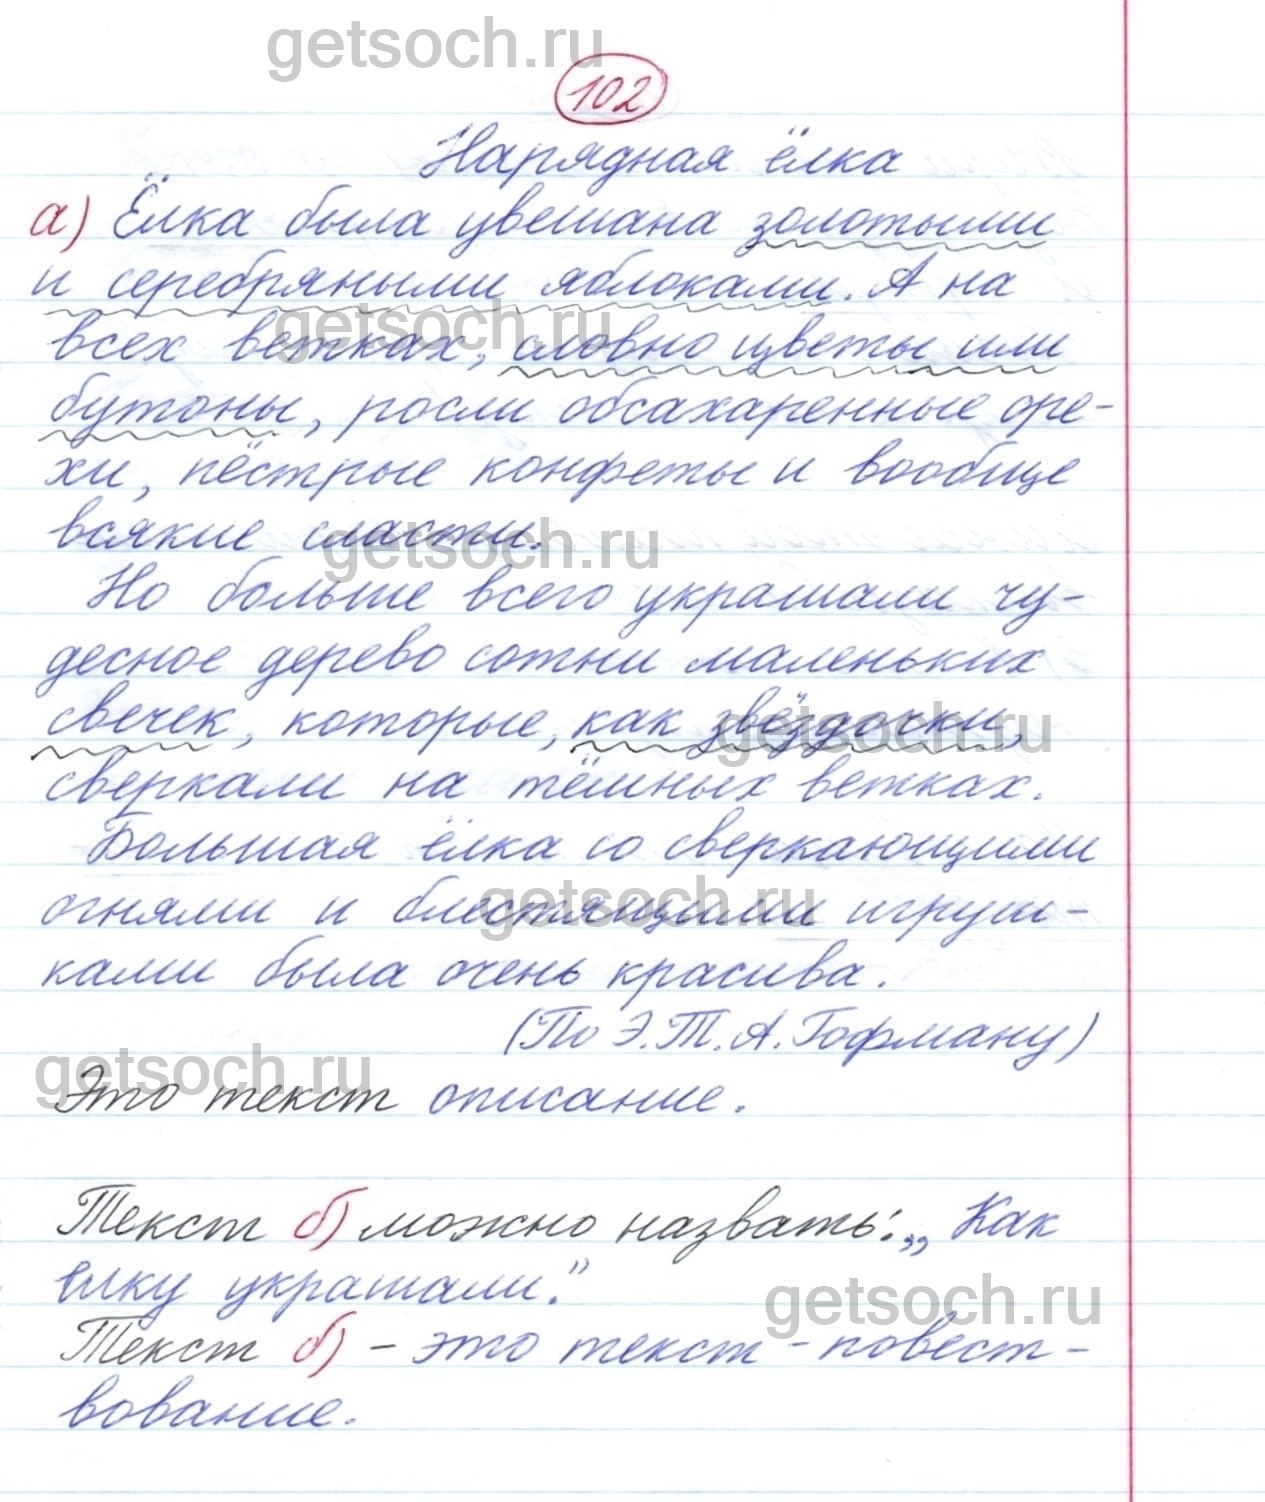 getsoch.ru
102
Нарядная ёлка
а) Ёлка была увешана золотыми
и серебряными яблоками. А на
getsoch.ru
всех ветках, словно цветы или
бутоны, росли обсахаренные оре-
хи, пёстрые конфеты и вообще
всякие сласти.
getsoch.ru
Но больше всего украшали чу-
десное дерево сотни маленьких
свечек, которые, как звёздочки,
getsoch.ru
сверкали на тёмных ветках.
Большая ёлка со сверкающими
getsoch.ru
огнями и блестящими игруш-
ками была очень красива.
(По Э.Т.А. Гофману)
getsoch.ru
Это текст описание.
Текст б) можно назвать: „Как
ёлку украшали."
getsoch.ru
Текст б) - это текст - повест-
вование.